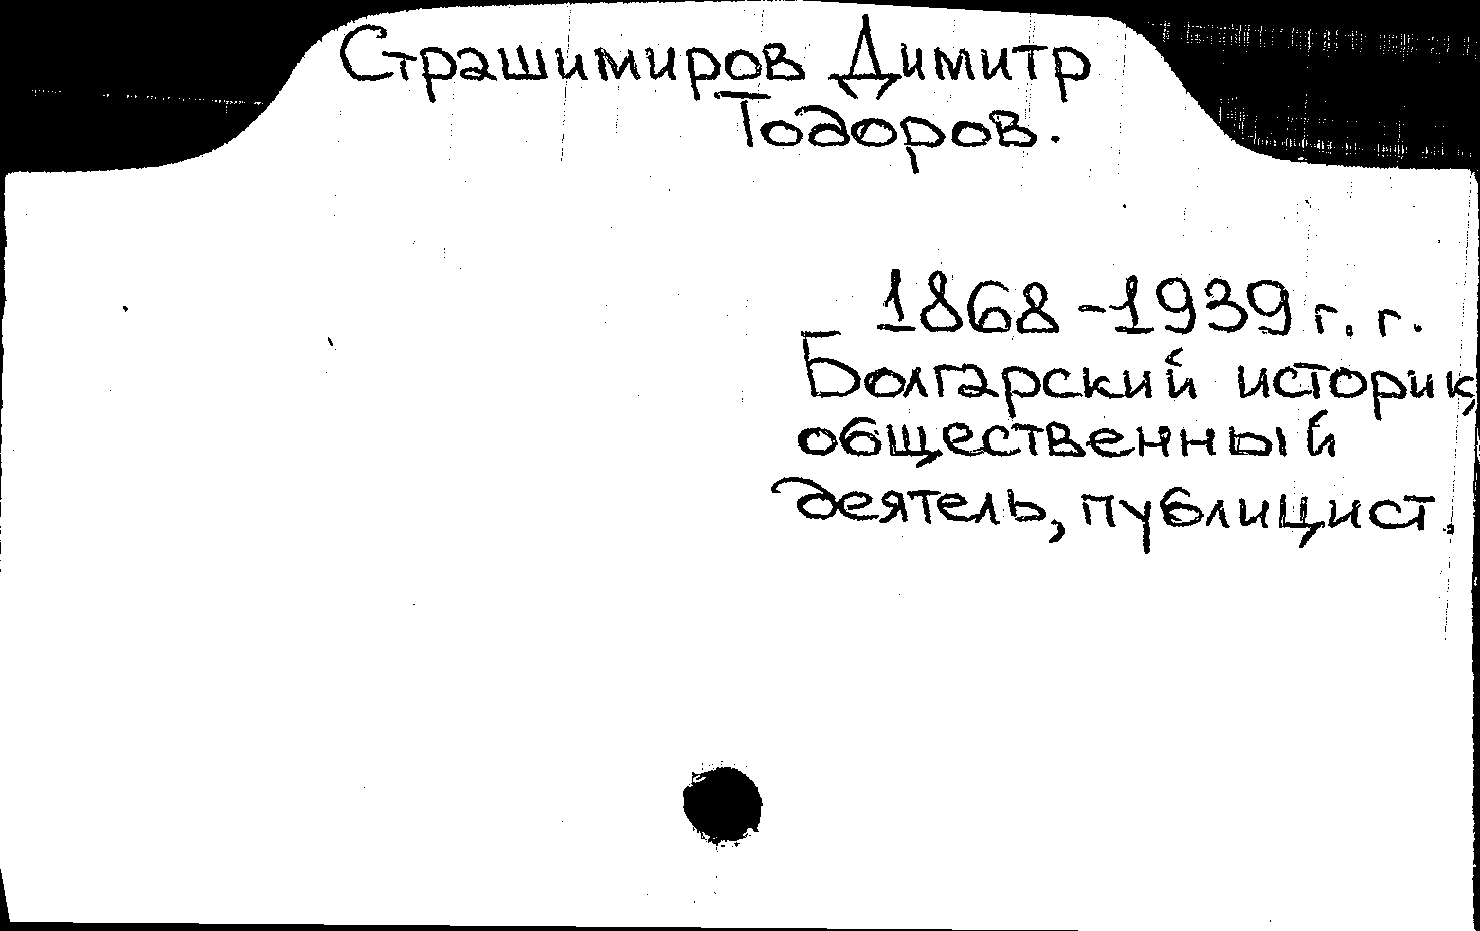 Страшимиров Димитр
Тодоров.
1868-1939 г. г.
Болгарский историк,
общественный
деятель, публицист.